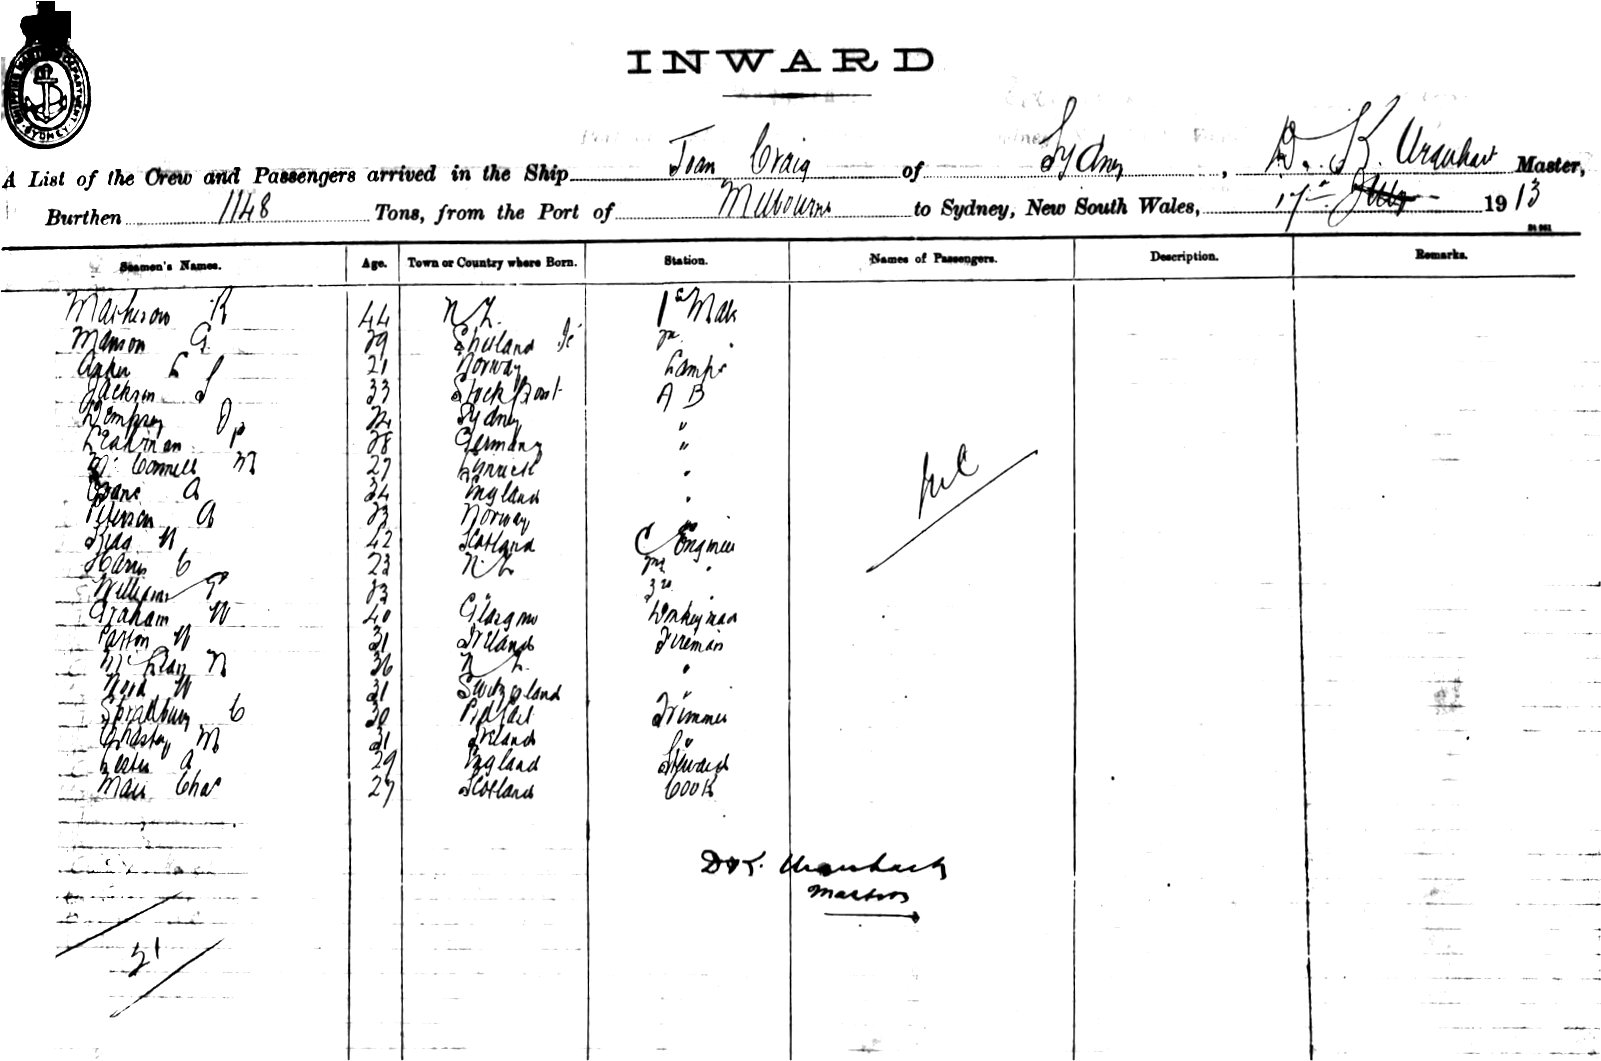 INWARD
A List of the Crew and Passengers arrived in the Ship Joan Craig of Sydney, D. K. Urquhart Master,
Burthen 1148 Tons, from the Port of Melbourne to Sydney, New South Wales, 17th July 1913
Seamen's Names. Age. Town or Country where Born. Station. Names of Passengers. Description. Remarks.
Matheson R 44 N Z. 1st Mate
Manson G 29 Shetland Is
21 Norway Lamps
Jackson S 33 Stockport A B
Dempsey Sydney "
28 Germany "
Mc Connell M 27 "
Evans A 34 England "
Petersen A 23 Norway "
Kidd W 42 Scotland C Engineer
Harris C 23 N. Z 2nd "
Williams 23 " 3rd "
Graham W 40 Glasgow Donkeyman
Patton W 31 Ireland Fireman
McLean N 36 N Z. "
W 31 Switzerland "
Spradbury C 30 Trimmer
M 31 Ireland "
Lester A 29 England Steward
Mair Chas 27 Scotland Cook
Nil
D K. Urquhart
Master
21